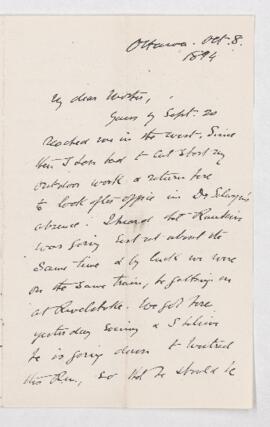 Ottawa. Oct. 8.
1894
My dear
Yours of Sept. 20
reached me in the west. Since
then I have had to cut short my
outdoor work & return here
to look after office in Dr Selwyn's
absence. I heard that
was going east at about the
same time & by luck we were
on the same train, he getting on
at Revelstoke. We got here
yesterday evening & I believe
he is going down to Montreal
this P.m., so that he should be